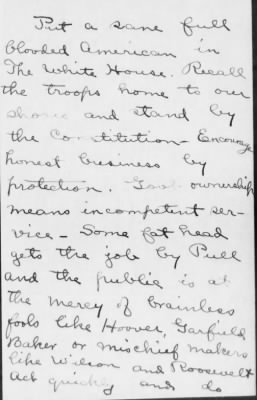 Put a sane full
blooded American in
The White House. Recall
the troops home to our
shores and stand by
the Constitution - Encourage
honest business by
protection. Govt. ownership
means incompetent ser-
vice - Some fat head
gets the job by Pull
and the public is at
the mercy of brainless
fools like Hoover, Garfield,
Baker or mischief makers
like Wilson and Roosevelt
Act quickly and do